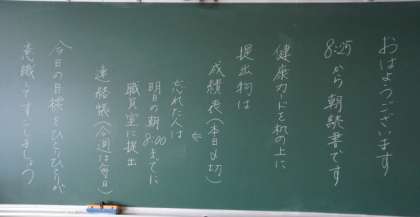 おはようございます
8:25 から 朝読書です
健康カードを机の上に
提出物は
成績表(本日〆切)
⇐ 忘れた人は
明日の朝
8:00までに
職員室に提出
連絡帳(今週は毎日)
今日の目標をひとりひとりが
意識してすごしましょう